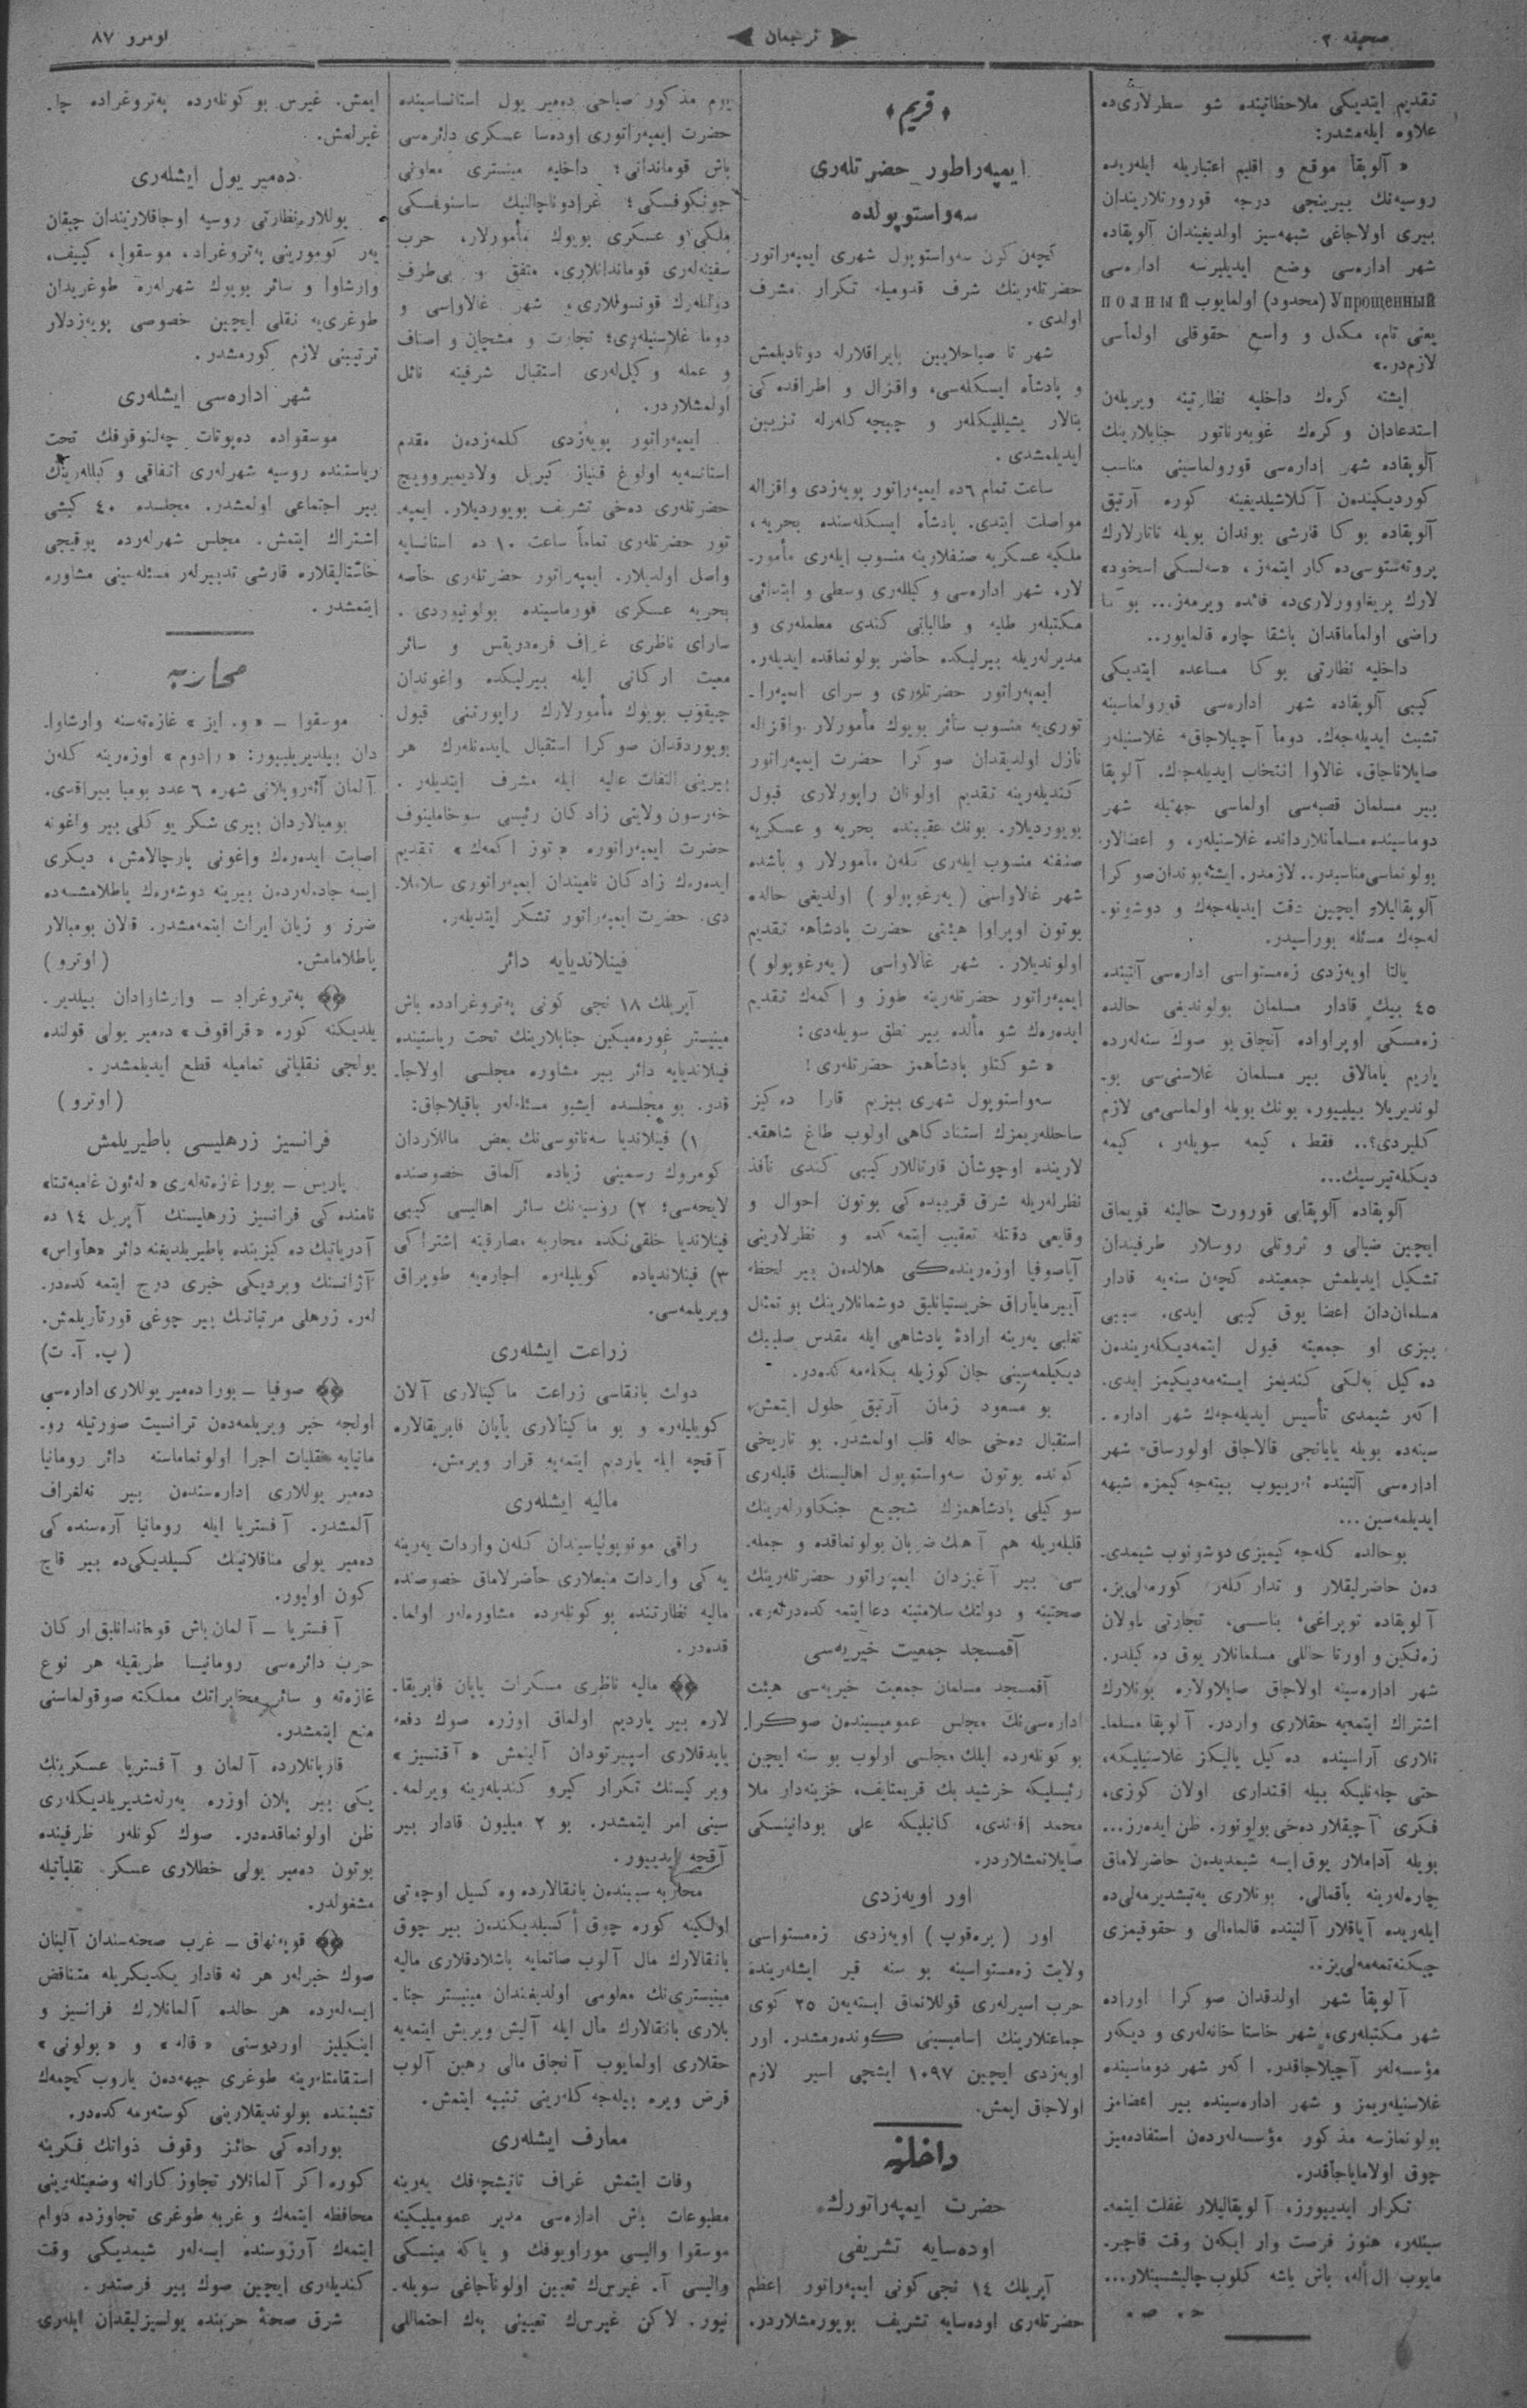 صحيفه ٢.
ترجمان
نومرو ٨٧
تقديم ايتديكى ملاحظاتينده شو سطرلارى‌ده
علاوه ايله‌مشدر:
« آلوپقا موقع و اقليم اعتباريله ايله‌ريده
روسيه‌نك بيرينجى درجه قورورتلاريندان
بيرى اولاجاغى شبهه‌سيز اولديغيندان آلوپقاده
شهر اداره‌سى وضع ايديليرسه اداره‌سى
Упрощенный (محدود) اولمايوب полный
يعنى تام، مكمل و واسع حقوقلى اولماسى
لازم‌در.»
ايشته كرەك داخليه نظارتينه ويريلەن
استدعادان و كرەك غوبەرناتور جنابلارينك
آلوپقاده شهر اداره‌سى قورولماسينى مناسب
كورديكيندەن آكلاشيلديغينه كوره آرتيق
آلوپقاده بوكا قارشى بوندان بويله تاتارلارك
پروتەستوسى‌ده كار ايتمەز، «سەلسكى اسخود»
لارك پريغاوورلارى‌ده فائده ويرمەز... بوكا
راضى اولماماقدان باشقا چاره قالمايور..
داخليه نظارتى بوكا مساعده ايتديكى
كيبى آلوپقاده شهر اداره‌سى قورولماسينه
تشبث ايديله‌جەك. دوما آچيلاجاق، غلاسنيلەر
صايلاناجاق، غالاوا انتخاب ايديله‌جك. آلوپقا
بير مسلمان قصبه‌سى اولماسى جهتيله شهر
دوماسينده مسلمانلاردانده غلاسنيلەر، و اعضالار
بولونماسى مناسبدر.. لازمدر. ايشته بوندان صوكرا
آلوپقاليلار ايچين دقت ايديله‌جەك و دوشونو-
له‌جەك مسئله بوراسيدر.
يالتا اويەزدى زەمستواسى اداره‌سى آلتينده
٤٥ بيك قادار مسلمان بولونديغى حالده
زەمسكى اوپراواده آنجاق بو صوك سنه‌لەرده
ياريم يامالاق بير مسلمان غلاسنى‌سى بو-
لونديريلا بيلييور، بونك بويله اولماسى‌مى لازم
كليردى؟.. فقط، كيمه سويلەر، كيمه
ديكله‌تيرسيك...
آلوپقاده آلوپقايى قورورت حالينه قويماق
ايچين ضيالى و ثروتلى روسلار طرفيندان
تشكيل ايديلمش جمعيتده كچەن سنه‌يه قادار
مسلمان‌دان اعضا يوق كيبى ايدى. سببى
بيزى او جمعيته قبول ايتمه‌ديكلەريندەن
دەكيل بەلكى كنديمز ايسته‌مه‌ديكيمز ايدى.
اكەر شيمدى تأسيس ايديله‌جەك شهر اداره-
سينه‌ده بويله يابانجى قالاجاق اولورساق، شهر
اداره‌سى آلتينده ازييوب بيته‌جه‌كيمزه شبهه
ايديلمه‌سين...
بوحالده كله‌جه‌كيميزى دوشونوب شيمدى-
دەن حاضرليقلار و تداركلەر كورمه‌لى‌يز.
آلوپقاده توپراغى، بناسى، تجارتى اولان
زەنكين و اورتا حاللى مسلمانلار يوق دەكيلدر.
شهر اداره‌سينه اولاجاق صايلاولاره بونلارك
اشتراك ايتمه‌يه حقلارى واردر. آلوپقا مسلما-
نلارى آراسينده دەكيل يالكز غلاسنيليكه،
حتى چله‌نليكه بيله اقتدارى اولان كوزى،
فكرى آچيقلار دەخى بولونور. ظن ايدەرز...
بويله آداملار يوق ايسه شيمديدەن حاضرلاماق
چاره‌لەرينه باقمالى. بونلارى يه‌تيشديرمه‌لى‌ده
ايله‌ريده آياقلار آلتينده قالمامالى و حقوقيمزى
چيكنه‌تمه‌مه‌لى‌يز..
آلوپقا شهر اولدقدان صوكرا اوراده
شهر مكتبلەرى، شهر خاستا خانه‌لەرى و ديكەر
مؤسسه‌لەر آچيلاجاقدر. اكەر شهر دوماسينده
غلاسنيلەريمز و شهر اداره‌سينده بير اعضامز
بولونمازسه مذكور مؤسسه‌لەردەن استفاده‌ميز
چوق اولاماياجاقدر.
تكرار ايدييورز، آلوپقاليلار غفلت ايتمه-
سينلەر، هنوز فرصت وار ايكەن وقت قاچير-
مايوب ال أله، باش باشه كلوب چاليشسينلار...
ح. ص.
﴿ قريم ﴾
ايمپەراطور حضرتلەرى
سەواستوپولده
كچەن كون سەواستوپول شهرى ايمپەراتور
حضرتلەرينك شرف قدوميله تكرار مشرف
اولدى.
شهر تا صباحلايين بايراقلارله دوناديلمش
و پادشاه ايسكله‌سى، واقزال و اطرافده‌كى
بنالار يشيلليكلەر و چيچەكلەرله تزيين
ايديلمشدى.
ساعت تمام ٦ده ايمپەراتور پويەزدى واقزاله
مواصلت ايتدى. پادشاه ايسكله‌سنده بحريه،
ملكيه عسكريه صنفلارينه منسوب ايلەرى مأمور-
لار، شهر اداره‌سى وكيللەرى وسطى و ابتدائى
مكتبلەر طلبه و طالباتى كندى معلملەرى و
مديرلەريله بيرليكده حاضر بولونماقده ايديلەر.
ايمپەراتور حضرتلەرى و سراى ايمپەرا-
تورى‌يه منسوب سائر بويوك مأمورلار واقزاله
نازل اولديقدان صوكرا حضرت ايمپەراتور
كنديلەرينه تقديم اولونان راپورلارى قبول
بويورديلار. بونك عقبينده بحريه و عسكريه
صنفنه منسوب ايلەرى كلەن مأمورلار و باشده
شهر غالاواسى (يەرغوپولو) اولديغى حالده
بوتون اوپراوا هيئتى حضرت پادشاهه تقديم
اولونديلار. شهر غالاواسى (يەرغوپولو)
ايمپەراتور حضرتلەرينه طوز و اكمەك تقديم
ايدەرەك شو مآلده بير نطق سويله‌دى:
« شوكتلو پادشاهمز حضرتلەرى!
سەواستوپول شهرى بيزيم قارا دەكيز
ساحللەريمزك استنادكاهى اولوب طاغ شاهقه-
لارينده اوچوشان قارتاللار كيبى كندى نافذ
نظرلەريله شرق قريبده‌كى بوتون احوال و
وقايعى دقتله تعقيب ايتمه‌كده و نظرلارينى
آياصوفيا اوزەرينده‌كى هلالدەن بير لحظه
آييرماياراق خريستيانليق دوشمانلارينك بو تمثال
تغلبى يەرينه ارادهٔ پادشاهى ايله مقدس صليبك
ديكيلمه‌سينى جان كوزيله بكله‌مه‌كده‌در.
بو مسعود زمان آرتيق حلول ايتمش،
استقبال دەخى حاله قلب اولمشدر. بو تاريخى
كونده بوتون سەواستوپول اهاليسنك قلبلەرى
سوكيلى پادشاهمزك شجيع جنكاورلەرينك
قلبلەريله هم آهنك ضربان بولونماقده و جمله-
سى بير آغيزدان ايمپەراتور حضرتلەرينك
صحتينه و دولتك سلامتينه دعا ايتمه‌كده‌درلەر».
آقمسجد جمعيت خيريه‌سى
آقمسجد مسلمان جمعيت خيريه‌سى هيئت
اداره‌سى‌نك مجلس عموميسيندەن صوكرا
بو كونلەرده ايلك مجلسى اولوب بو سنه ايچين
رئيسليكه خرشيد بك قريمتايف، خزينه‌دار ملا
محمد افندى، كاتبليكه على بودانينسكى
صايلانمشلاردر.
اور اويەزدى
اور (پرەقوپ) اويەزدى زەمستواسى
ولايت زەمستواسينه بو سنه قير ايشلەرينده
حرب اسيرلەرى قوللانماق ايستەيەن ٢٥ كوى
جماعتلارينك اساميسينى كوندەرمشدر. اور
اويەزدى ايچين ١٠٩٧ ايشچى اسير لازم
اولاجاق ايمش.
داخليه
حضرت ايمپەراتورك
اودەسايه تشريفى
آپريلك ١٤ نجى كونى ايمپەراتور اعظم
حضرتلەرى اودەسايه تشريف بويورمشلاردر.
يوم مذكور صباحى دەمير يول استانساسينده
حضرت ايمپەراتورى اودەسا عسكرى دائره‌سى
باش قوماندانى؛ داخليه مينسترى معاونى
جونكوفسكى؛ غرادوناچالنيك ساسنوفسكى
ملكى و عسكرى بويوك مأمورلار، حرب
سفينه‌لەرى قوماندانلارى، متفق و بى‌طرف
دولتلەرك قونسوللارى، شهر غالاواسى و
دوما غلاسنيلەرى؛ تجارت و مشچان و اصناف
و عمله وكيل‌لەرى استقبال شرفينه نائل
اولمشلاردر.
ايمپەراتور پويەزدى كلمه‌زدەن مقدم
استانسه‌يه اولوغ قنياز كيريل ولاديميروويچ
حضرتلەرى دەخى تشريف بويورديلار. ايمپه-
تور حضرتلەرى تماماً ساعت ١٠ ده استانسايه
واصل اولديلار. ايمپەراتور حضرتلەرى خاصه
بحريه عسكرى فورماسينده بولونيوردى.
ساراى ناظرى غراف فرەدريقس و سائر
معيت اركانى ايله بيرليكده واغوندان
چيقوب بويوك مأمورلارك راپورتنى قبول
بويوردقدان صوكرا استقبال ايدەنلەرك هر
بيرينى التفات عاليه ايله مشرف ايتديلەر.
خەرسون ولايتى زادكان رئيسى سوخاملينوف
حضرت ايمپەراتوره «توز اكمەك» تقديم
ايدەرەك زادكان ناميندان ايمپەراتورى سلاملا-
دى. حضرت ايمپەراتور تشكر ايتديلەر.
فينلاندىيايه دائر
آپريلك ١٨ نجى كونى پەتروغرادده باش
مينيستر غورەميكين جنابلارينك تحت رياستينده
فينلاندىيايه دائر بير مشاوره مجلسى اولاجا-
قدر. بو مجلسده ايشبو مسئله‌لەر باقيلاجاق:
١) فينلانديا سەناتوسى‌نك بعض ماللاردان
كومروك رسمينى زياده آلماق خصوصنده
لايحه‌سى؛ ٢) روسيه‌نك سائر اهاليسى كيبى
فينلانديا خلقى‌نكده محاربه مصارفينه اشتراكى
٣) فينلانديادە كويليلەره اجاره‌يه طوپراق
ويريلمه‌سى.
زراعت ايشلەرى
دولت بانقاسى زراعت ماكينالارى آلان
كويليلەره و بو ماكينالارى ياپان فابريقالاره
آقچه ايله يارديم ايتمه‌يه قرار ويرمش.
ماليه ايشلەرى
راقى مونوپولياسيندان كلەن واردات يەرينه
يەكى واردات منبعلارى حاضرلاماق خصوصنده
ماليه نظارتنده بو كونلەرده مشاوره‌لەر اولما-
قده‌در.
ماليه ناظرى مسكرات ياپان فابريقا-
لاره بير يارديم اولماق اوزره صوك دفعه
ياپدقلارى اسپيرتودان آلينمش «آقتسيز»
ويركيسنك تكرار كيرو كنديلەرينه ويرلمه-
سينى امر ايتمشدر. بو ٢ ميليون قادار بير
آقچه ايدييور.
محاربه سببيندەن بانقالارده وه‌كسيل اوچوتى
اولكينه كوره چوق أكسيلديكندەن بير چوق
بانقالارك مال آلوب صاتمايه باشلادقلارى ماليه
مينيسترى‌نك معلومى اولديغندان مينيستر جنا-
بلارى بانقالارك مال ايله آليش ويريش ايتمه‌يه
حقلارى اولمايوب آنجاق مالى رهين آلوب
قرض ويره بيله‌جه‌كلەرينى تنبيه ايتمش.
معارف ايشلەرى
وفات ايتمش غراف تاتيشچەفك يەرينه
مطبوعات باش اداره‌سى مدير عموميليكينه
موسقوا واليسى موراويوفك و ياكه مينسكى
واليسى آ. غيرس‌ك تعيين اولوناجاغى سويله-
نيور. لاكن غيرس‌ك تعيينى پەك احتماللى
ايمش. غيرس بو كونلەرده پەتروغراده چا-
غيرلمش.
دەمير يول ايشلەرى
يوللار نظارتى روسيه اوجاقلاريندان چيقان
يەر كومورينى پەتروغراد، موسقوا، كييف،
وارشاوا و سائر بويوك شهرلەره طوغريدان
طوغرى‌يه نقلى ايچين خصوصى پويەزدلار
ترتيبنى لازم كورمشدر.
شهر اداره‌سى ايشلەرى
موسقواده دەپوتات چەلنوقوفك تحت
رياستنده روسيه شهرلەرى اتفاقى وكيللەرينك
بير اجتماعى اولمشدر. مجلسده ٤٠ كيشى
اشتراك ايتمش. مجلس شهرلەرده يوقيجى
خاستاليقلاره قارشى تدبيرلەر مسئله‌سينى مشاوره
ايتمشدر.
محاربه
موسقوا — «و. ايز» غازه‌ته‌سنه وارشاوا-
دان بيلديريلييور: «رادوم» اوزەرينه كلەن
آلمان آئەروپلانى شهره ٦ عدد بومبا بيراقدى.
بومبالاردان بيرى شكر يوكلى بير واغونه
اصابت ايدەرەك واغونى پارچالامش، ديكرى
ايسه جاده‌لەردەن بيرينه دوشەرەك پاطلامشسه‌ده
ضرر و زيان ايراث ايتمه‌مشدر. قالان بومبالار
پاطلامامش. (اوترو)
پەتروغراد — وارشاوادان بيلدير-
يلديكنه كوره «قراقوف» دەمير يولى قولنده
يولجى نقلياتى تماميله قطع ايديلمشدر.
(اوترو)
فرانسيز زرهليسى باطيريلمش
پاريس — بورا غازه‌ته‌لەرى «لەئون غامبەتتا»
نامنده‌كى فرانسيز زرهليسنك آپريل ١٤ ده
آدرياتيك دەكيزينده باطيريلديغنه دائر «هاواس»
آژانسنك ويرديكى خبرى درج ايتمه‌كده‌در-
لەر. زرهلى مرتباتنك بير چوغى قورتاريلمش.
(پ. آ. ت)
صوفيا — بورا دەمير يوللارى اداره‌سى
اولجه خبر ويريلمه‌دەن ترانسيت صورتيله رو-
مانيايه نقليات اجرا اولونماماسنه دائر رومانيا
دەمير يوللارى اداره‌سندەن بير تەلغراف
آلمشدر. آفستريا ايله رومانيا آره‌سنده‌كى
دەمير يولى مناقلاتينك كسيلديكى‌ده بير قاچ
كون اوليور.
آفستريا — آلمان باش قوماندانليق اركان
حرب دائره‌سى رومانيا طريقيله هر نوع
غازه‌ته و سائر مخابراتك مملكته صوقولماسنى
منع ايتمشدر.
قارپاتلارده آلمان و آفستريا عسكرينك
يكى بير پلان اوزره يەرله‌شديريلديكلەرى
ظن اولونماقده‌در. صوك كونلەر ظرفينده
بوتون دەمير يولى خطلارى عسكر نقلياتيله
مشغولدر.
قوپەنهاق — غرب صحنه‌سندان آلينان
صوك خبرلەر هر نه قادار يكديكريله متناقض
ايسه‌لەرده هر حالده آلمانلارك فرانسيز و
اينكيليز اوردوسنى «قاله» و «بولونى»
استقامتلەرينه طوغرى جبهه‌دەن ياروب كچمەك
تشبثنده بولونديقلارينى كوستەرمه‌كده‌در.
بوراده‌كى حائز وقوف ذواتك فكرينه
كوره اكر آلمانلار تجاوزكارانه وضعيتلەرينى
محافظه ايتمەك و غربه طوغرى تجاوزده دوام
ايتمەك آرزوسنده ايسه‌لەر شيمديكى وقت
كنديلەرى ايچين صوك بير فرصتدر.
شرق صحنهٔ حربنده يولسيزليقدان ايلەرى